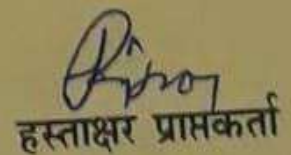 हस्ताक्षर प्राप्तकर्ता